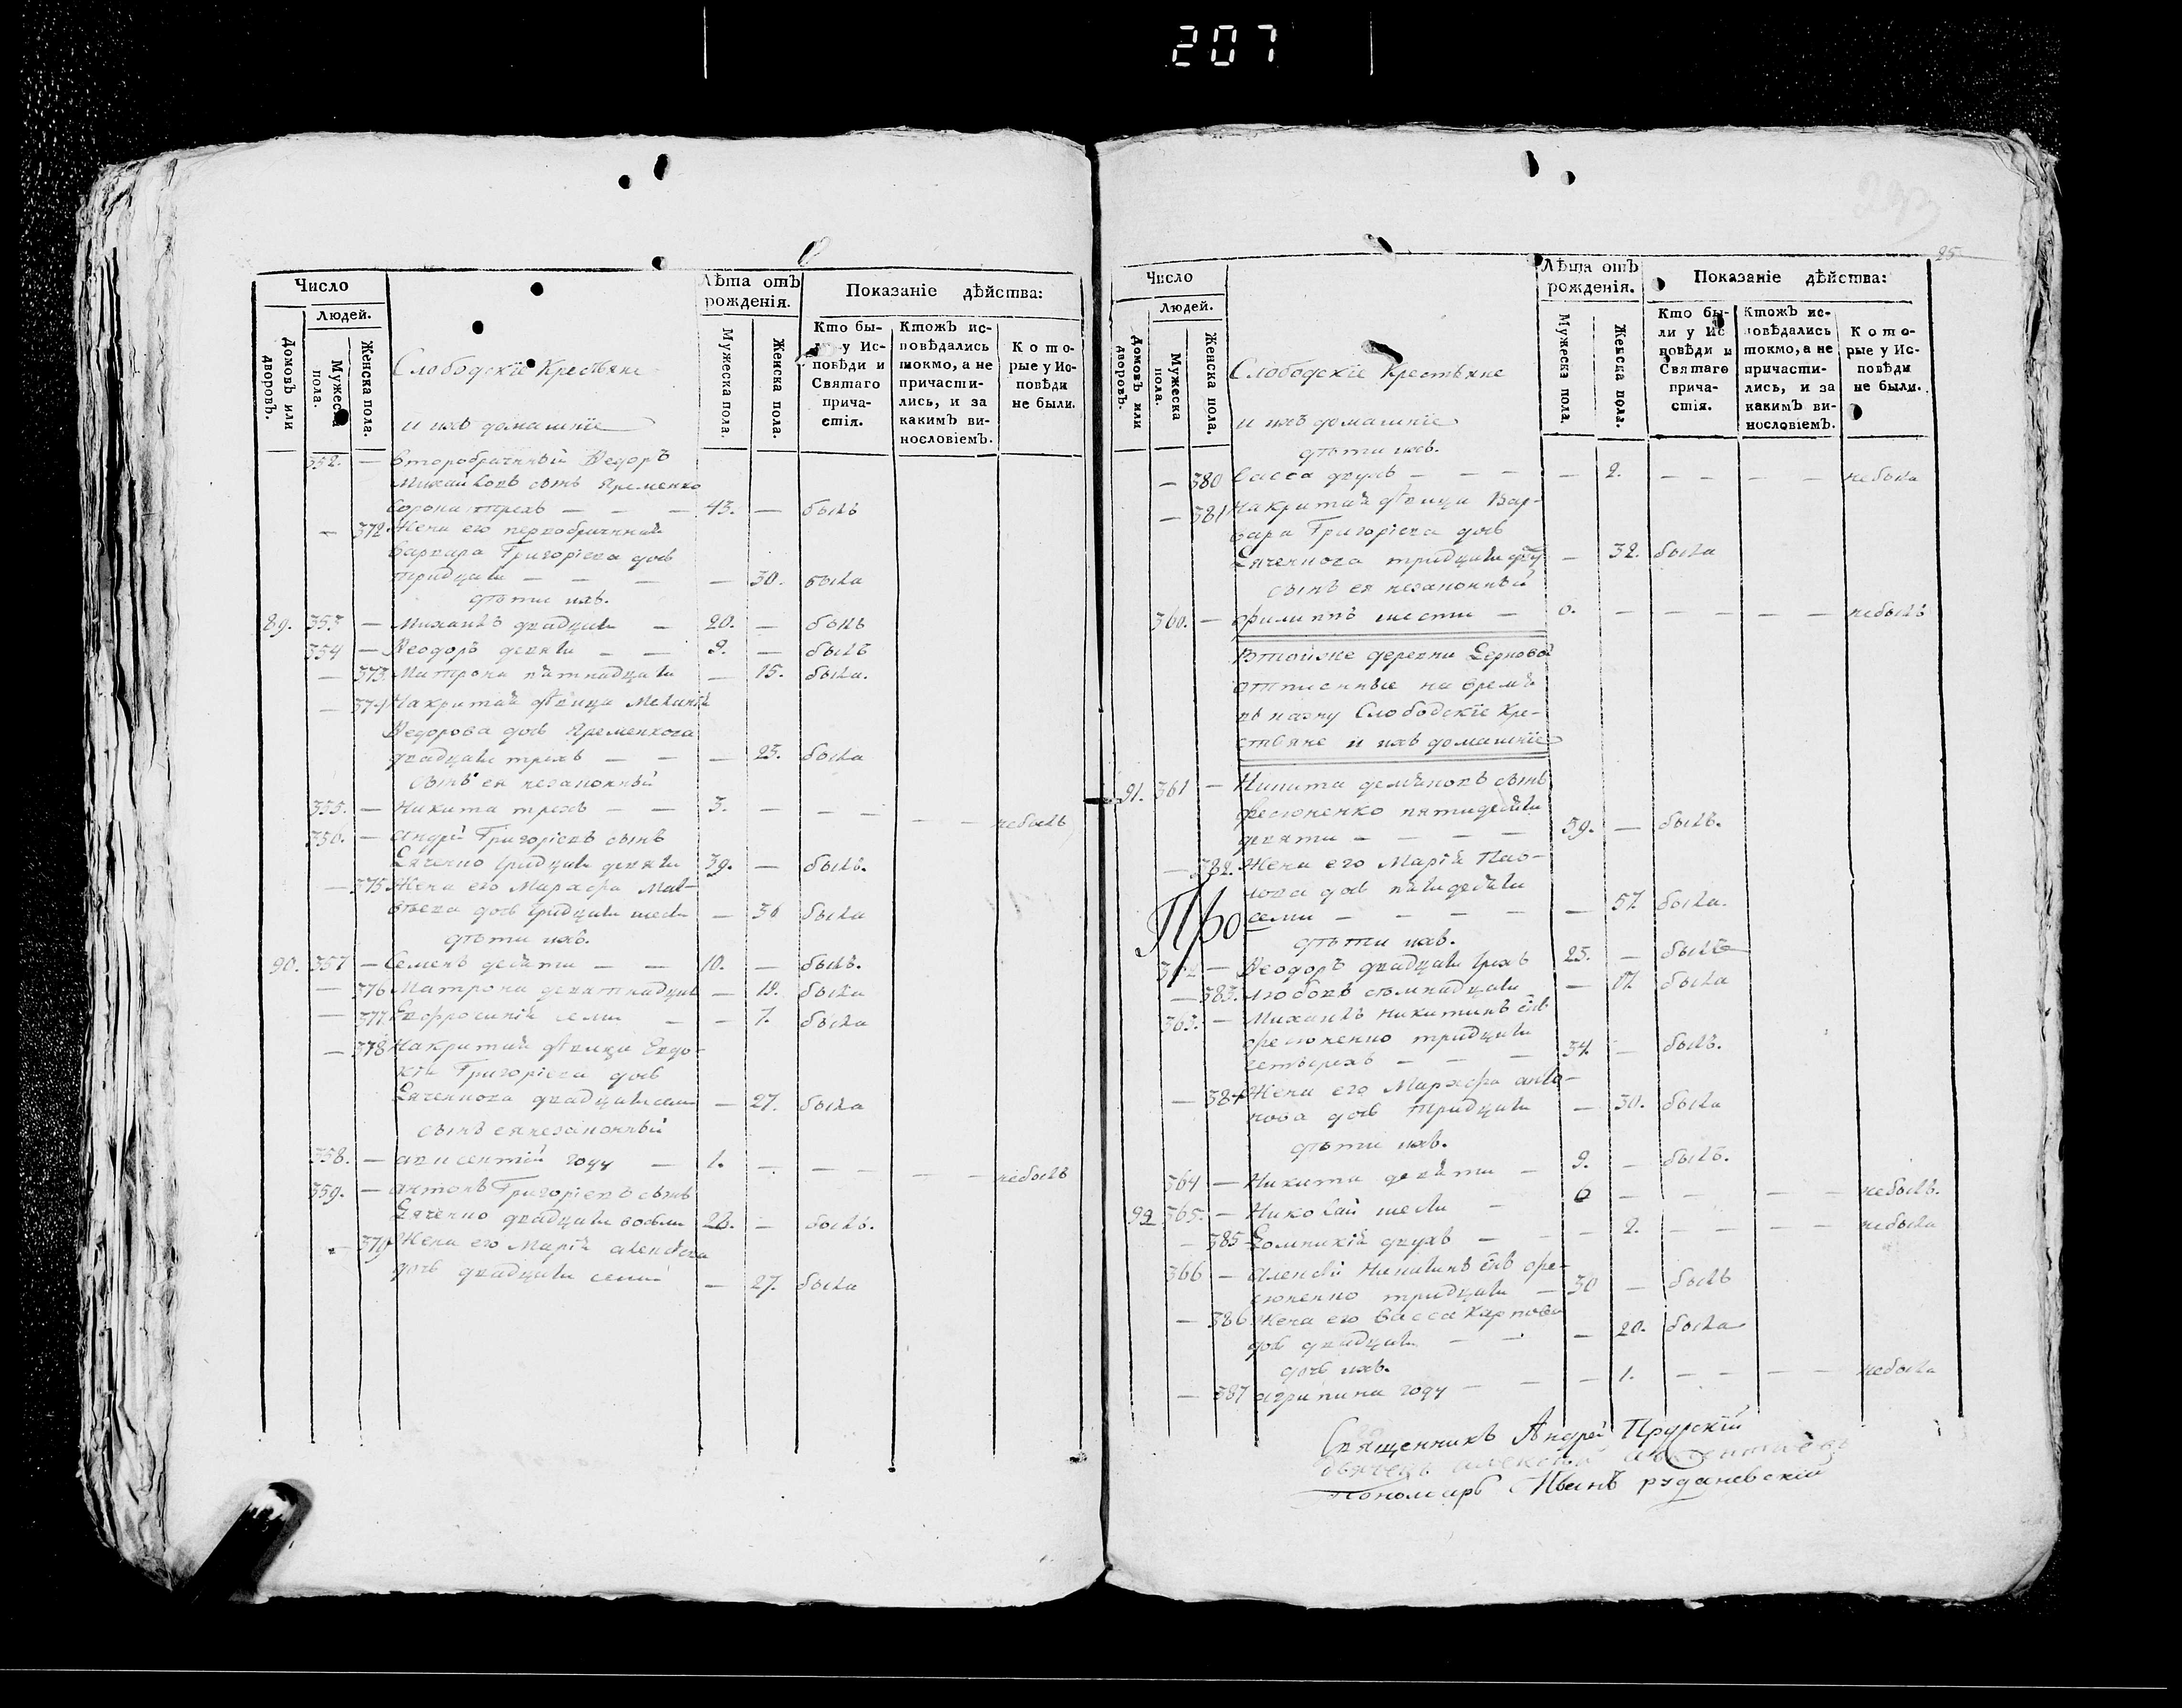 207
293
95
Число
Людей.
Домовъ или дворовъ.
Мужеска пола.
Женска пола.
Слободскіе Крестьяне
и ихъ домашніе
Лѣта отъ рожденія.
Мужеска пола.
Женска пола.
Показаніе дѣйства:
Кто бы-
ли у Ис-
повѣди и
Святаго
прича-
стія.
Ктожъ ис-
повѣдались
токмо, а не
причасти-
лись, и за
какимъ ви-
нословіемъ.
Кото-
рые у Ис-
повѣди
не были.
352. — второбрачный Ѳедоръ
Михайловъ сынъ Яременко
сорока трехъ — — — 43. — былъ
— 372 Жена его первобрачная
Варвара Григоріева дочь
тридцати — — — — 30. была
дѣти ихъ.
89. 353 — Михаилъ двадцати — 20. — былъ
354 — Ѳеодоръ девяти — — 9. — былъ
— 373. Матрона пятнадцати — 15. была.
— 374 Накритая дѣвица Меланія
Ѳедорова дочь Яременкова
двадцати трехъ — — — 23. была
сынъ ея незаконный
355. — Никита трехъ — — 3. — — — — — небылъ
356. — Андрей Григоріевъ сынъ
тридцати девяти 39. — былъ.
— 375 Жена его Марѳа Мат-
вѣева дочь тридцати шести — 36 была
дѣти ихъ.
90. 357 — Семенъ десяти — — 10. — былъ.
— 376 Матрона девятнадцати — 19. была
— 377 Евфросинія семи — — 7. была
— 378 Накритая дѣвица Евдо-
кія Григоріева дочь
двадцати семи — 27. была
сынъ ея незаконный
358. — авксентій году — 1. — — — — — небылъ
359. — антонъ Григоріевъ сынъ
двадцати восьми 28. — былъ.
— 379 Жена его Марія алексѣева
дочь двадцати семи — 27. была
Число
Людей.
Домовъ или дворовъ.
Мужеска пола.
Женска пола.
Слободскіе Крестьяне
и ихъ домашніе
Лѣта отъ рожденія.
Мужеска пола.
Женска пола.
Показаніе дѣйства:
Кто бы-
ли у Ис
повѣди и
Святаго
прича-
стія.
Ктожъ ис-
повѣдались
токмо, а не
причасти-
лись, и за
какимъ ви-
нословіемъ.
Кото-
рые у Ис-
повѣди
не были.
дѣти ихъ.
— 380 Васса двухъ — — — — 2. — — — — небыла
— 381 Накритая дѣвица Вар-
вара Григоріева дочь
тридцати двух — 32. была
сынъ ея незаконный
360. — Филиппъ шести — 6. — — — — — небылъ
Втойже деревни
отписанные на время
въ казну Слободскіе Кре-
стьяне и ихъ домашніе
91. 361 — Никита демяновъ сынъ
Фесюненко пятидесяти
девяти — — — — 59. — былъ.
— 382. Жена его Марія Пав-
лова дочь пятидесяти
семи — — — — — 57. была.
Про
дѣти ихъ.
362 — Ѳеодоръ двадцати трехъ 23. — былъ
— 383. Любовь семнадцати — 17. была
363. — Михаилъ Никитинъ снъ
Фесюненко тридцати
четырехъ — — — 34. — былъ.
— 384 Жена его Марѳа анто-
нова дочь тридцати — 30. была
дѣти ихъ.
364 — Никита девяти — 9. — былъ.
92 365. — Николай шести — 6 — — — — небылъ.
— 385 Домникія двухъ — — — 2. — — — — небыла
366 — алексѣй Никитинъ снъ Фе-
сюненко тридцати — 30 — былъ
— 386. Жена его Васса Карпова
дочь двадцати — — — 20. была
дочь ихъ.
— 387 агрипина году — — — 1. — — — — небыла
Священникъ Андрей
Пономарь Иванъ